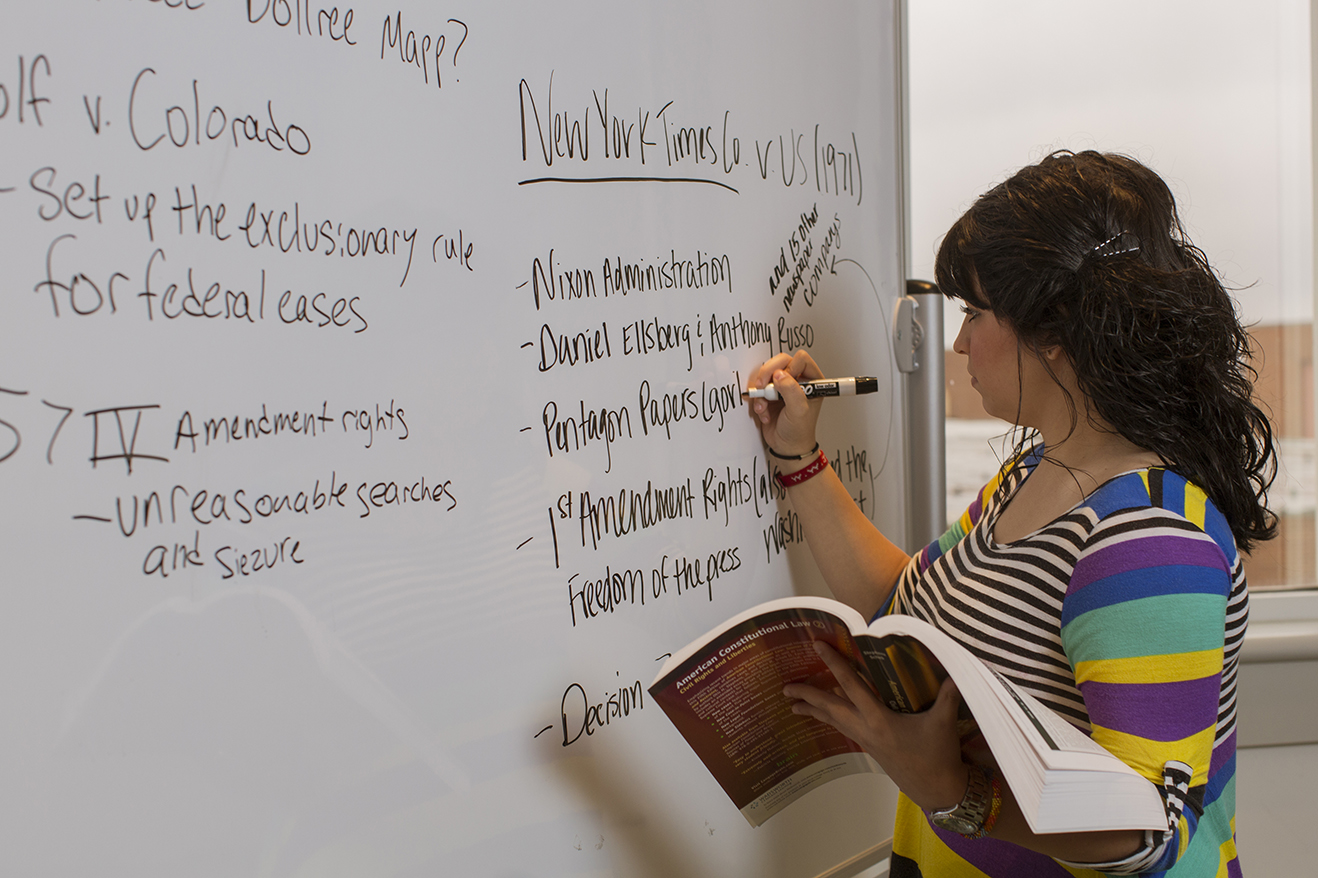 Dollree Mapp?
v. Colorado
- Set up the exclusionary rule
for federal cases
57 IV Amendment rights
- unreasonable searches
and siezure
New York Times Co. v. US (1971)
and 15 other
newspaper
companys
- Nixon Administration
- Daniel Ellsberg & Anthony Russo
- Pentagon Papers (gov't
- 1st Amendment Rights (also and the
Freedom of the press
- Decision
American Constitutional Law
Civil Rights and Liberties